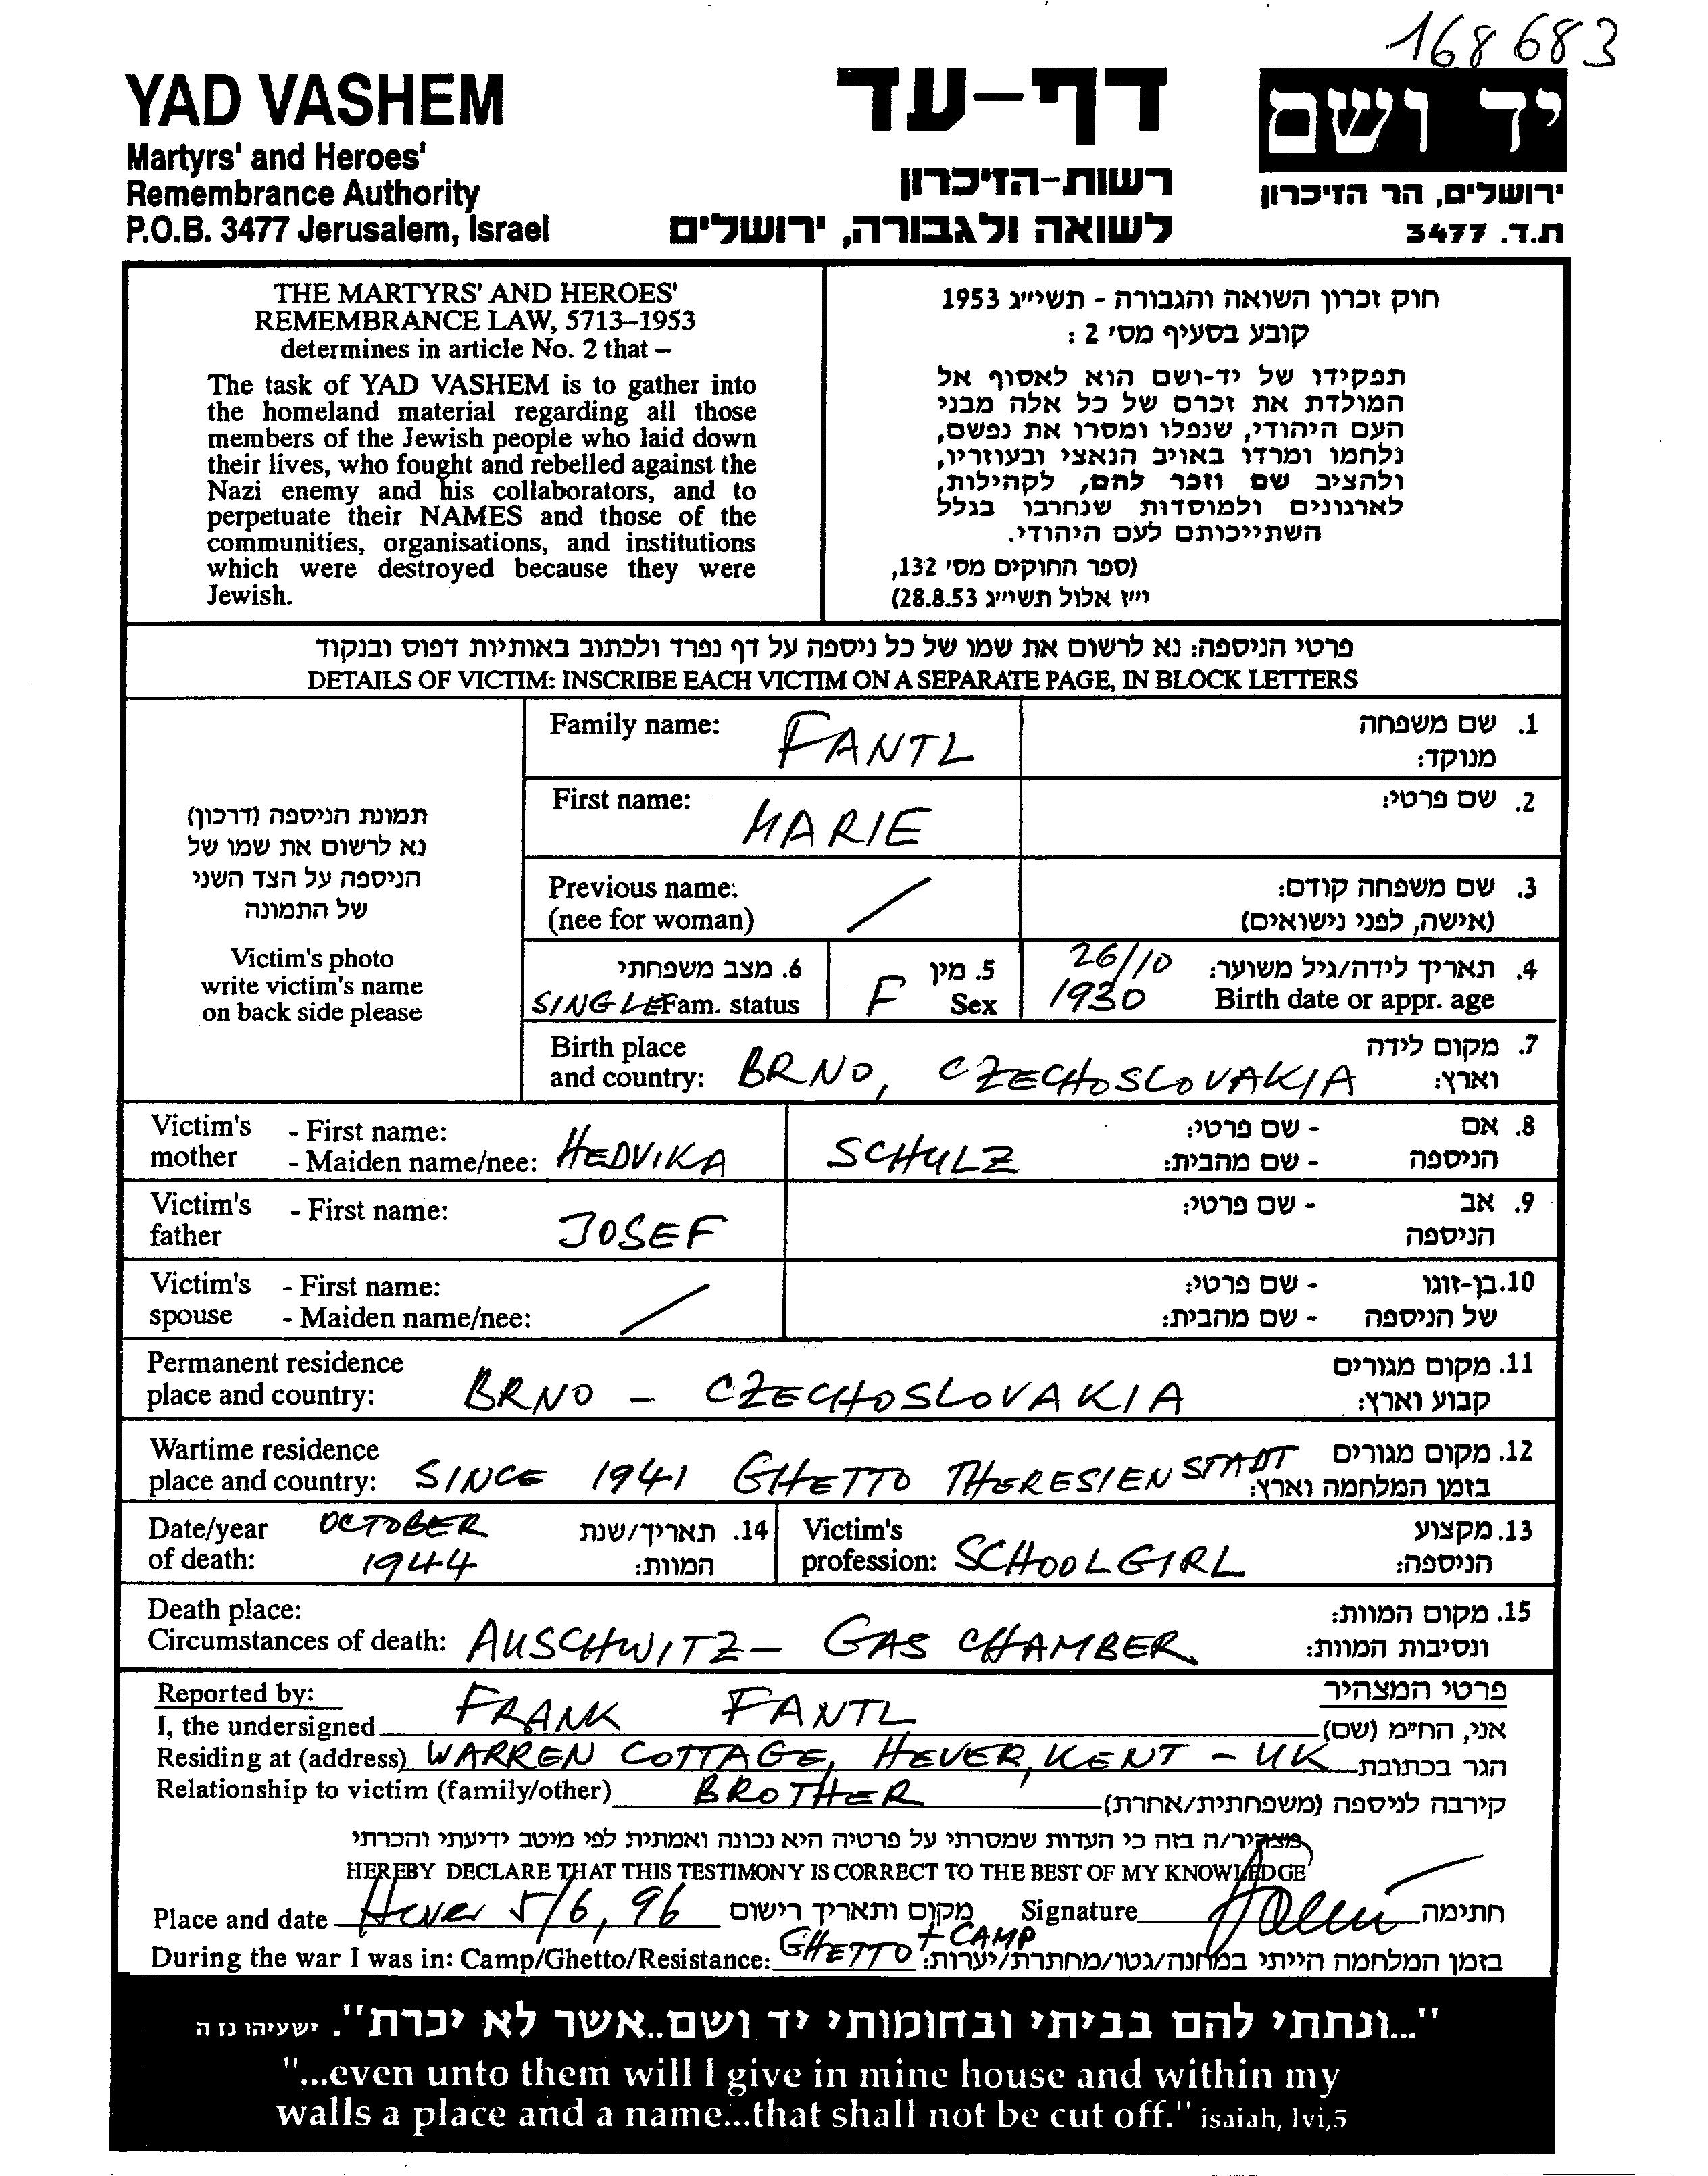 168683
YAD VASHEM
Martyrs' and Heroes'
Remembrance Authority
P.O.B. 3477 Jerusalem, Israel
דף-עד
רשות-הזיכרון
לשואה ולגבורה, ירושלים
יד ושם
ירושלים, הר הזיכרון
ת.ד. 3477
THE MARTYRS' AND HEROES'
REMEMBRANCE LAW, 5713–1953
determines in article No. 2 that –
The task of YAD VASHEM is to gather into
the homeland material regarding all those
members of the Jewish people who laid down
their lives, who fought and rebelled against the
Nazi enemy and his collaborators, and to
perpetuate their NAMES and those of the
communities, organisations, and institutions
which were destroyed because they were
Jewish.
חוק זכרון השואה והגבורה - תשי״ג 1953
קובע בסעיף מס' 2 :
תפקידו של יד-ושם הוא לאסוף אל
המולדת את זכרם של כל אלה מבני
העם היהודי, שנפלו ומסרו את נפשם,
נלחמו ומרדו באויב הנאצי ובעוזריו,
ולהציב שם וזכר להם, לקהילות,
לארגונים ולמוסדות שנחרבו בגלל
השתייכותם לעם היהודי.
(ספר החוקים מס' 132,
י״ז אלול תשי״ג 28.8.53)
פרטי הניספה: נא לרשום את שמו של כל ניספה על דף נפרד ולכתוב באותיות דפוס ובנקוד
DETAILS OF VICTIM: INSCRIBE EACH VICTIM ON A SEPARATE PAGE, IN BLOCK LETTERS
תמונת הניספה (דרכון)
נא לרשום את שמו של
הניספה על הצד השני
של התמונה
Victim's photo
write victim's name
on back side please
Family name: FANTL 1. שם משפחה
מנוקד:
First name: MARIE 2. שם פרטי:
Previous name: / 3. שם משפחה קודם:
(nee for woman) (אישה, לפני נישואים)
6. מצב משפחתי 5. מין 26/10 4. תאריך לידה/גיל משוער:
SINGLE Fam. status F Sex 1930 Birth date or appr. age
Birth place 7. מקום לידה
and country: BRNO, CZECHOSLOVAKIA וארץ:
Victim's - First name: - שם פרטי: 8. אם
mother - Maiden name/nee: HEDVIKA SCHULZ - שם מהבית: הניספה
Victim's - First name: - שם פרטי: 9. אב
father JOSEF הניספה
Victim's - First name: - שם פרטי: 10. בן-זוגו
spouse - Maiden name/nee: / - שם מהבית: של הניספה
Permanent residence 11. מקום מגורים
place and country: BRNO - CZECHOSLOVAKIA קבוע וארץ:
Wartime residence 12. מקום מגורים
place and country: SINCE 1941 GHETTO THERESIENSTADT בזמן המלחמה וארץ:
Date/year OCTOBER 14. תאריך/שנת Victim's 13. מקצוע
of death: 1944 המוות: profession: SCHOOLGIRL הניספה:
Death place: 15. מקום המוות:
Circumstances of death: AUSCHWITZ - GAS CHAMBER ונסיבות המוות:
Reported by: פרטי המצהיר
I, the undersigned FRANK FANTL אני, הח״מ (שם)
Residing at (address) WARREN COTTAGE, HEVER, KENT - UK הגר בכתובת
Relationship to victim (family/other) BROTHER קירבה לניספה (משפחתית/אחרת)
מצהיר/ה בזה כי העדות שמסרתי על פרטיה היא נכונה ואמתית לפי מיטב ידיעתי והכרתי
HEREBY DECLARE THAT THIS TESTIMONY IS CORRECT TO THE BEST OF MY KNOWLEDGE
Place and date Hever 5/6, 96 מקום ותאריך רישום Signature חתימה
During the war I was in: Camp/Ghetto/Resistance: GHETTO + CAMP בזמן המלחמה הייתי במחנה/גטו/מחתרת/יערות:
"...ונתתי להם בביתי ובחומותי יד ושם..אשר לא יכרת". ישעיהו נז ה
"...even unto them will I give in mine house and within my
walls a place and a name...that shall not be cut off." isaiah, lvi,5